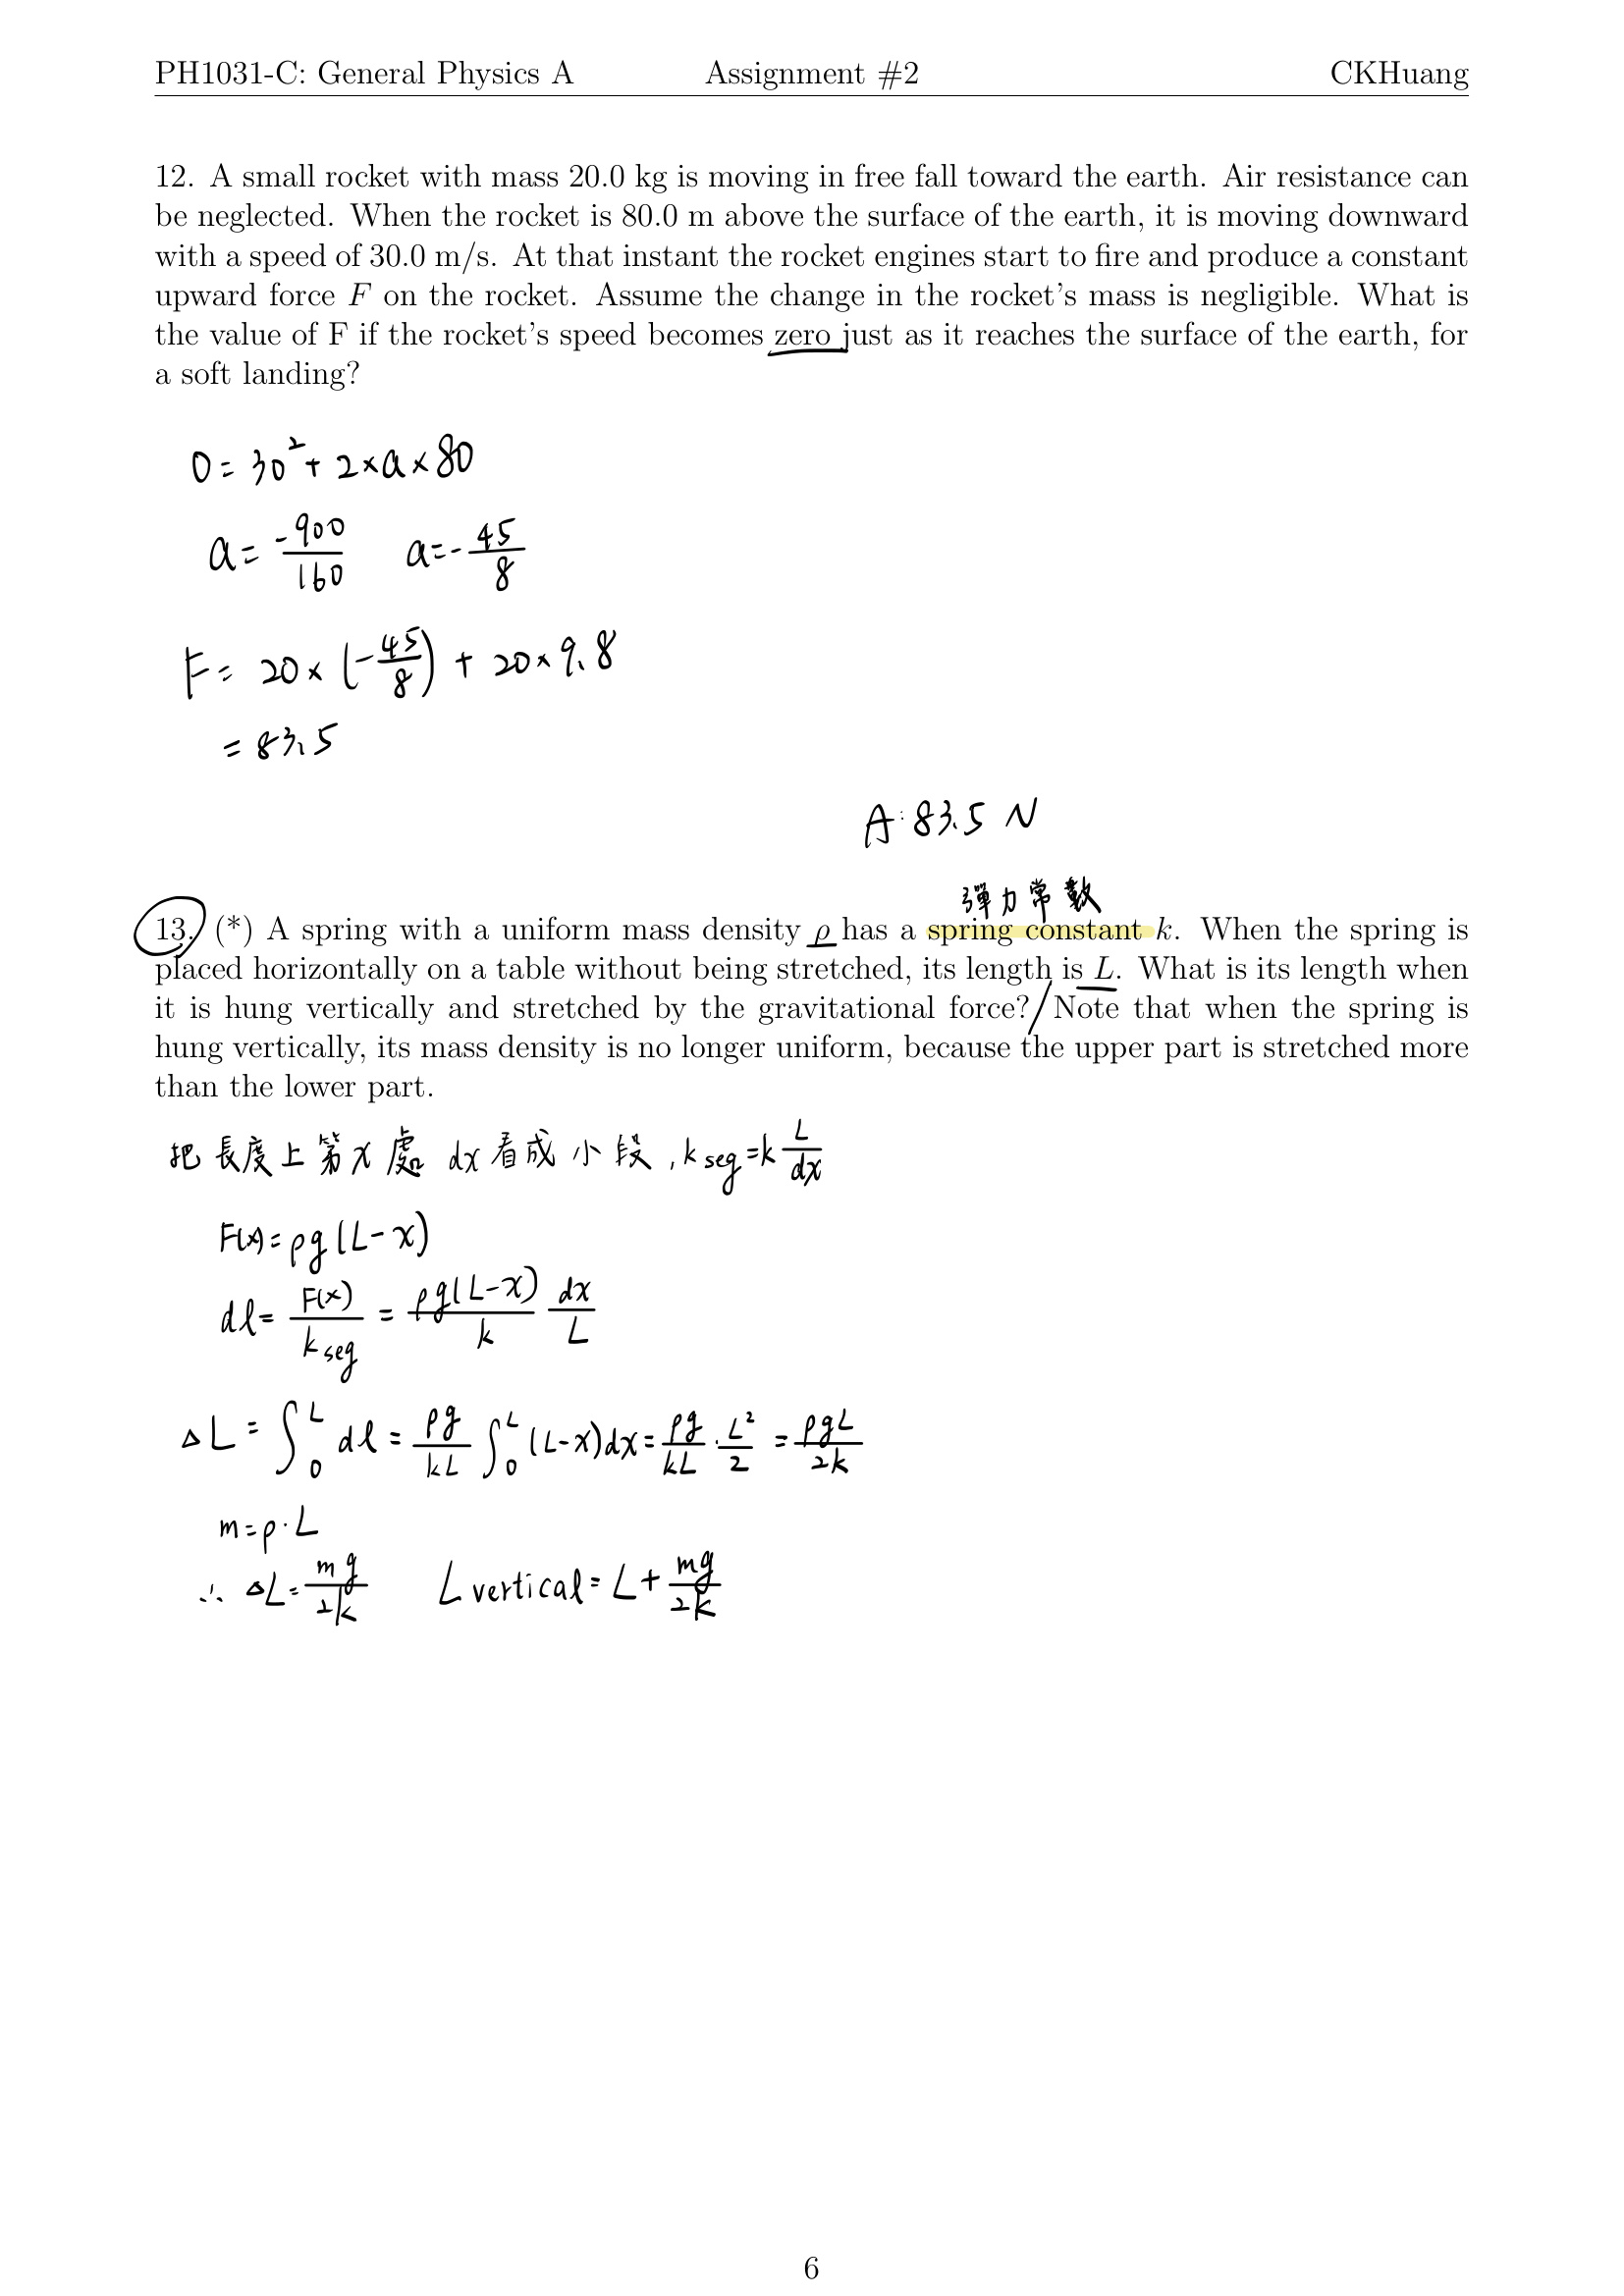 PH1031-C: General Physics A Assignment #2 CKHuang
12. A small rocket with mass 20.0 kg is moving in free fall toward the earth. Air resistance can
be neglected. When the rocket is 80.0 m above the surface of the earth, it is moving downward
with a speed of 30.0 m/s. At that instant the rocket engines start to fire and produce a constant
upward force F on the rocket. Assume the change in the rocket's mass is negligible. What is
the value of F if the rocket's speed becomes zero just as it reaches the surface of the earth, for
a soft landing?
0 = 30² + 2×a×80
a = -900/160 a = -45/8
F = 20×(-45/8) + 20×9.8
= 83.5
A: 83.5 N
彈力常數
13. (*) A spring with a uniform mass density ρ has a spring constant k. When the spring is
placed horizontally on a table without being stretched, its length is L. What is its length when
it is hung vertically and stretched by the gravitational force? / Note that when the spring is
hung vertically, its mass density is no longer uniform, because the upper part is stretched more
than the lower part.
把長度上第 x 處 dx 看成小段, k seg = k L/dx
F(x) = ρg(L-x)
dl = F(x)/k seg = ρg(L-x)/k dx/L
ΔL = ∫₀ᴸ dl = ρg/kL ∫₀ᴸ (L-x)dx = ρg/kL · L²/2 = ρgL/2k
m = ρ·L
∴ ΔL = mg/2k L vertical = L + mg/2k
6